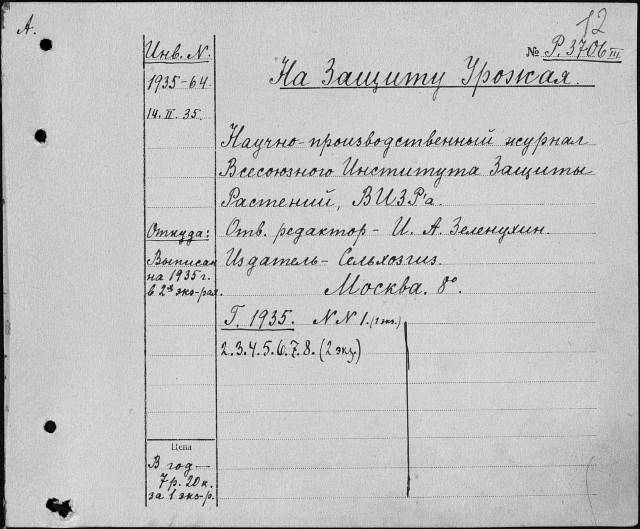 А.
12
№ Р. 3706 III
Инв. N.
1935-64
14. II. 35.
На Защиту Урожая.
Научно-производственный журнал
Всесоюзного Института Защиты
Растений, ВИЗР'а.
Откуда:
Отв. редактор - И. А. Зеленухин.
Выписан
на 1935 г.
в 2х экз-рах.
Издатель - Сельхозгиз.
Москва. 8°.
Г. 1935. N N 1. (1 экз.)
2. 3. 4. 5. 6. 7. 8. (2 экз.)
Цена
В год—
7 р. 20 к.
за 1 экз-р.